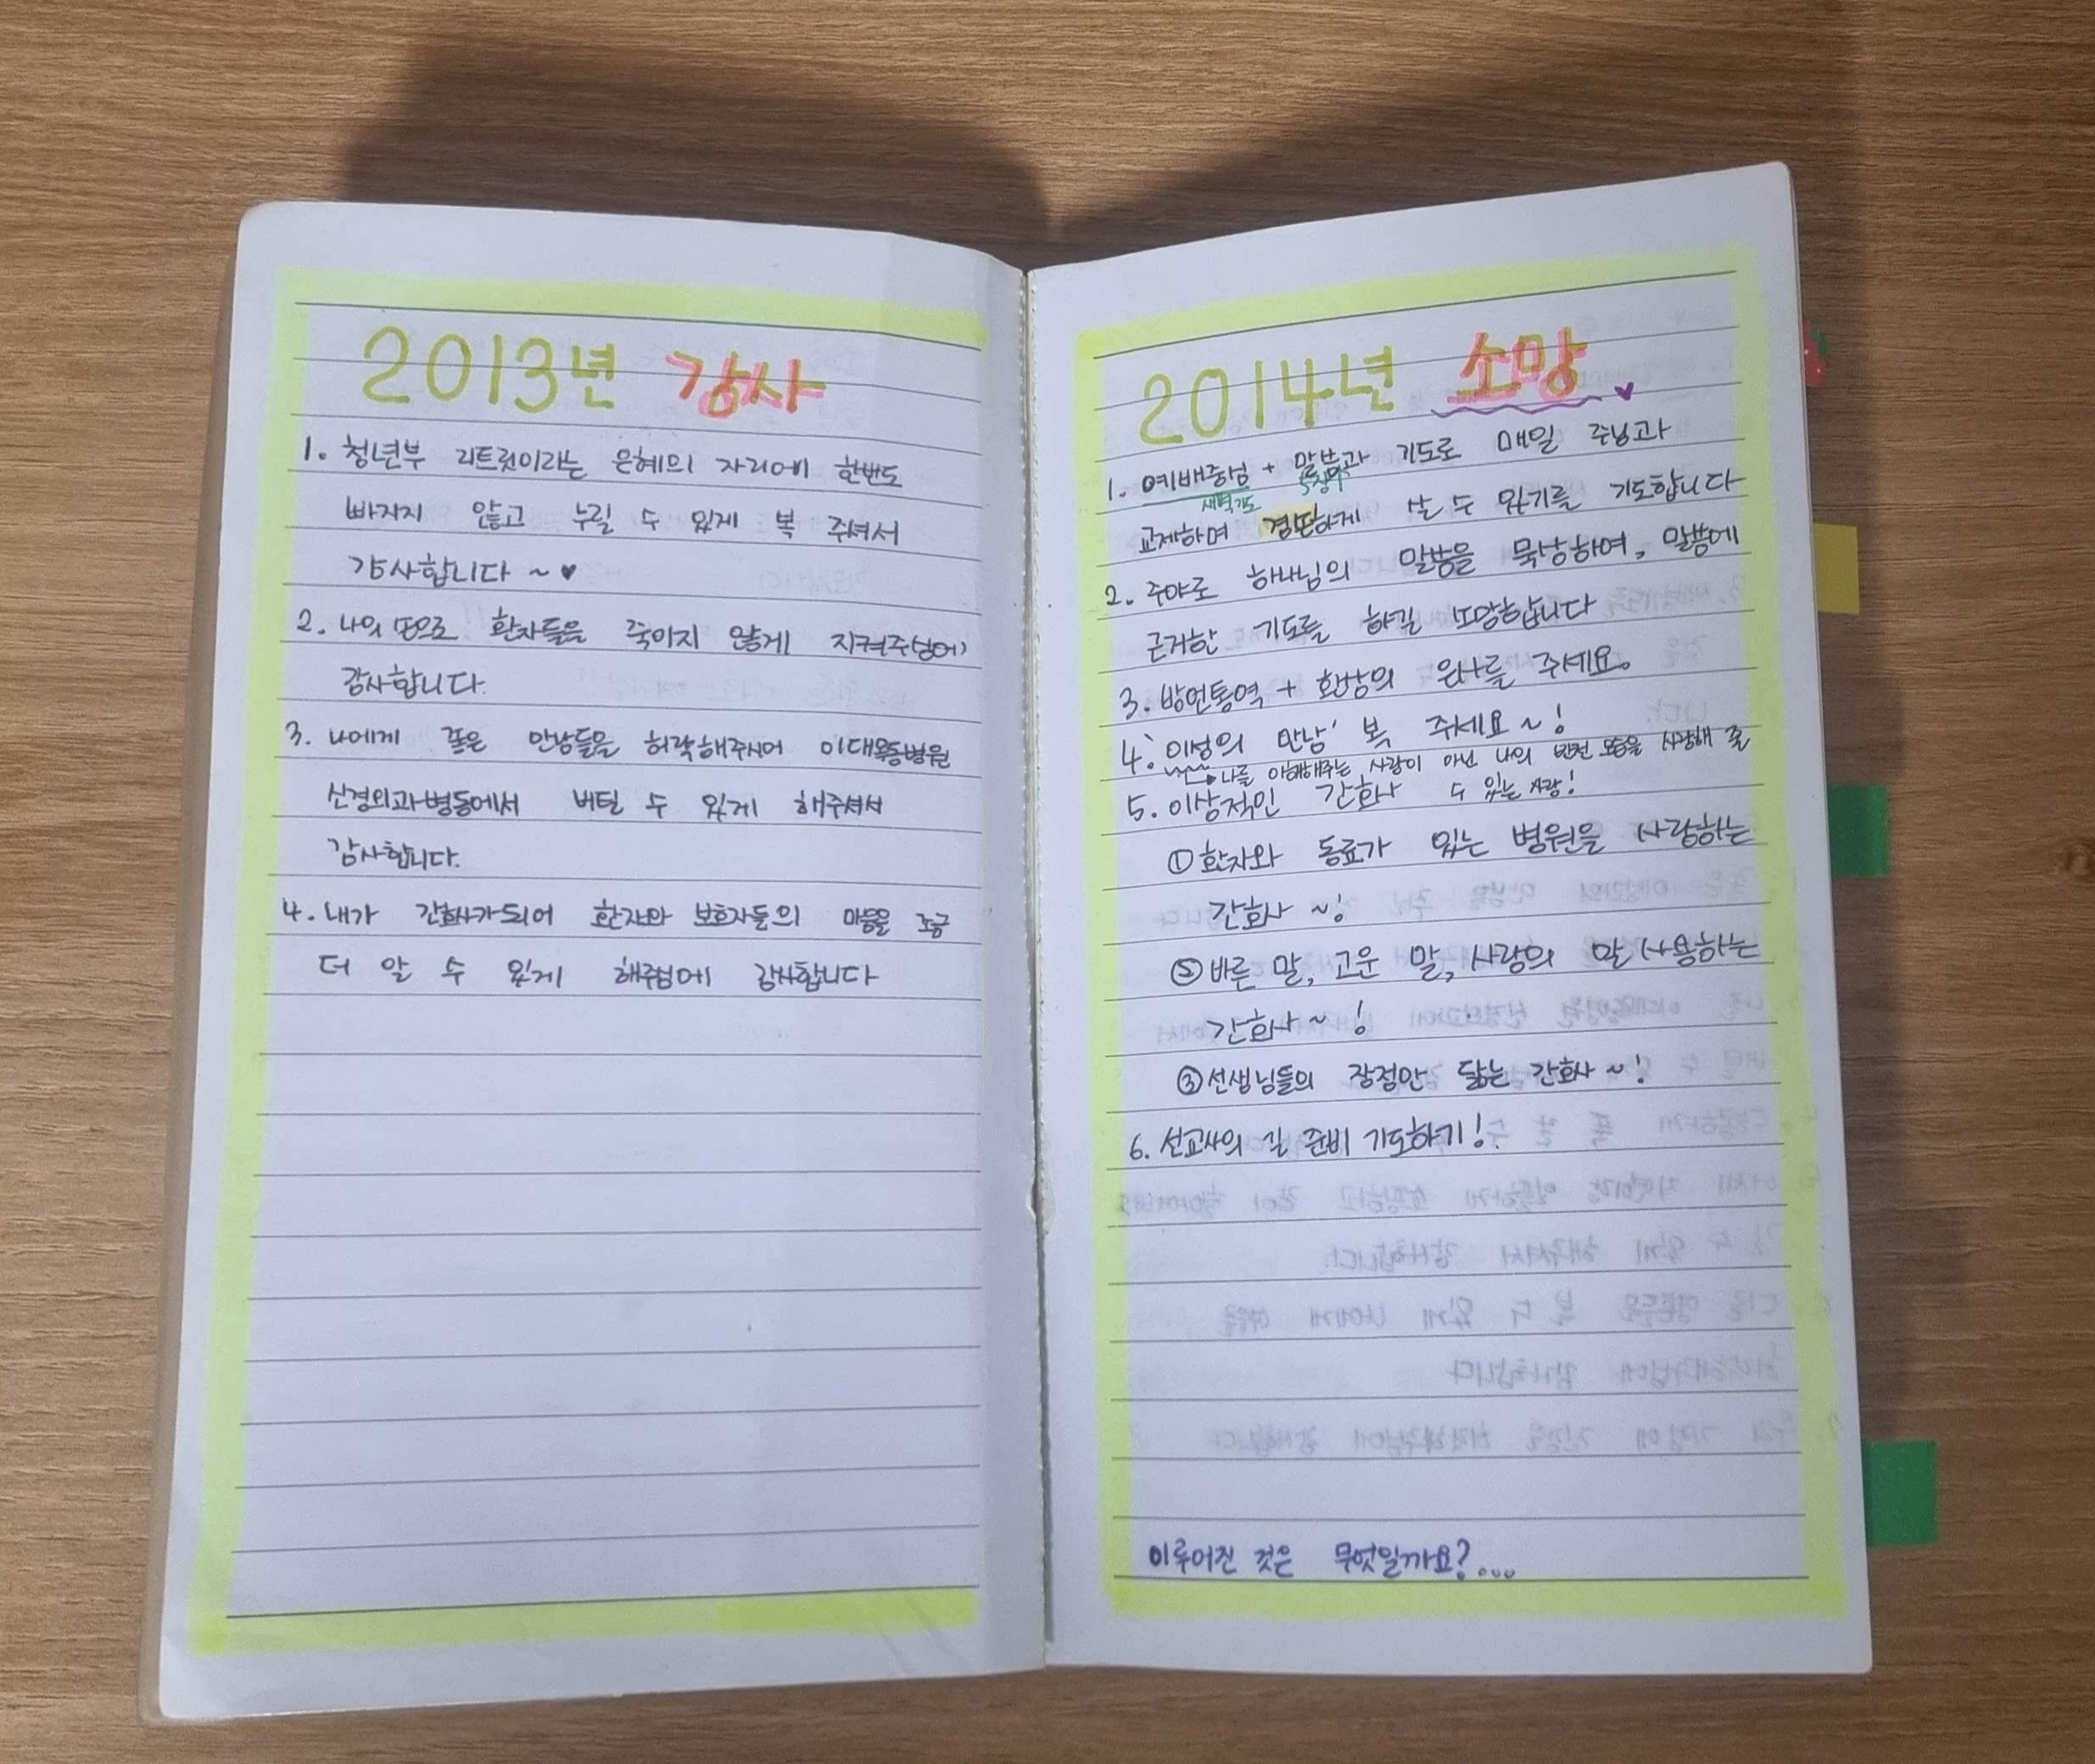 2013년 감사
1. 청년부 리트릿이라는 은혜의 자리에 한번도
빠지지 않고 누릴 수 있게 복 주셔서
감사합니다 ~ ♥
2. 나의 땀으로 환자들을 죽이지 않게 지켜주심에
감사합니다.
3. 나에게 좋은 만남들을 허락해주시어 이대목동병원
신경외과병동에서 버틸 수 있게 해주셔서
감사합니다.
4. 내가 간호사가되어 환자와 보호자들의 마음을 조금
더 알 수 있게 해주심에 감사합니다
2014년 소망
1. 예배중심 + 말씀과 기도로 매일 주님과
새벽기도 5장씩
교제하며 경건하게 살 수 있기를 기도합니다
2. 주야로 하나님의 말씀을 묵상하여, 말씀에
근거한 기도를 하길 소망합니다
3. 방언통역 + 환상의 은사를 주세요.
4. '이성의 만남' 복 주세요 ~ !
나를 이해해주는 사람이 아닌 나의 모습을 사랑해 줄
수 있는 사람!
5. 이상적인 간호사
① 환자와 동료가 있는 병원을 사랑하는
간호사 ~!
② 바른 말, 고운 말, 사랑의 말 사용하는
간호사 ~ !
③ 선생님들의 장점만 닮는 간호사 ~ !
6. 선교사의 길 준비 기도하기!
이루어진 것은 무엇일까요?...